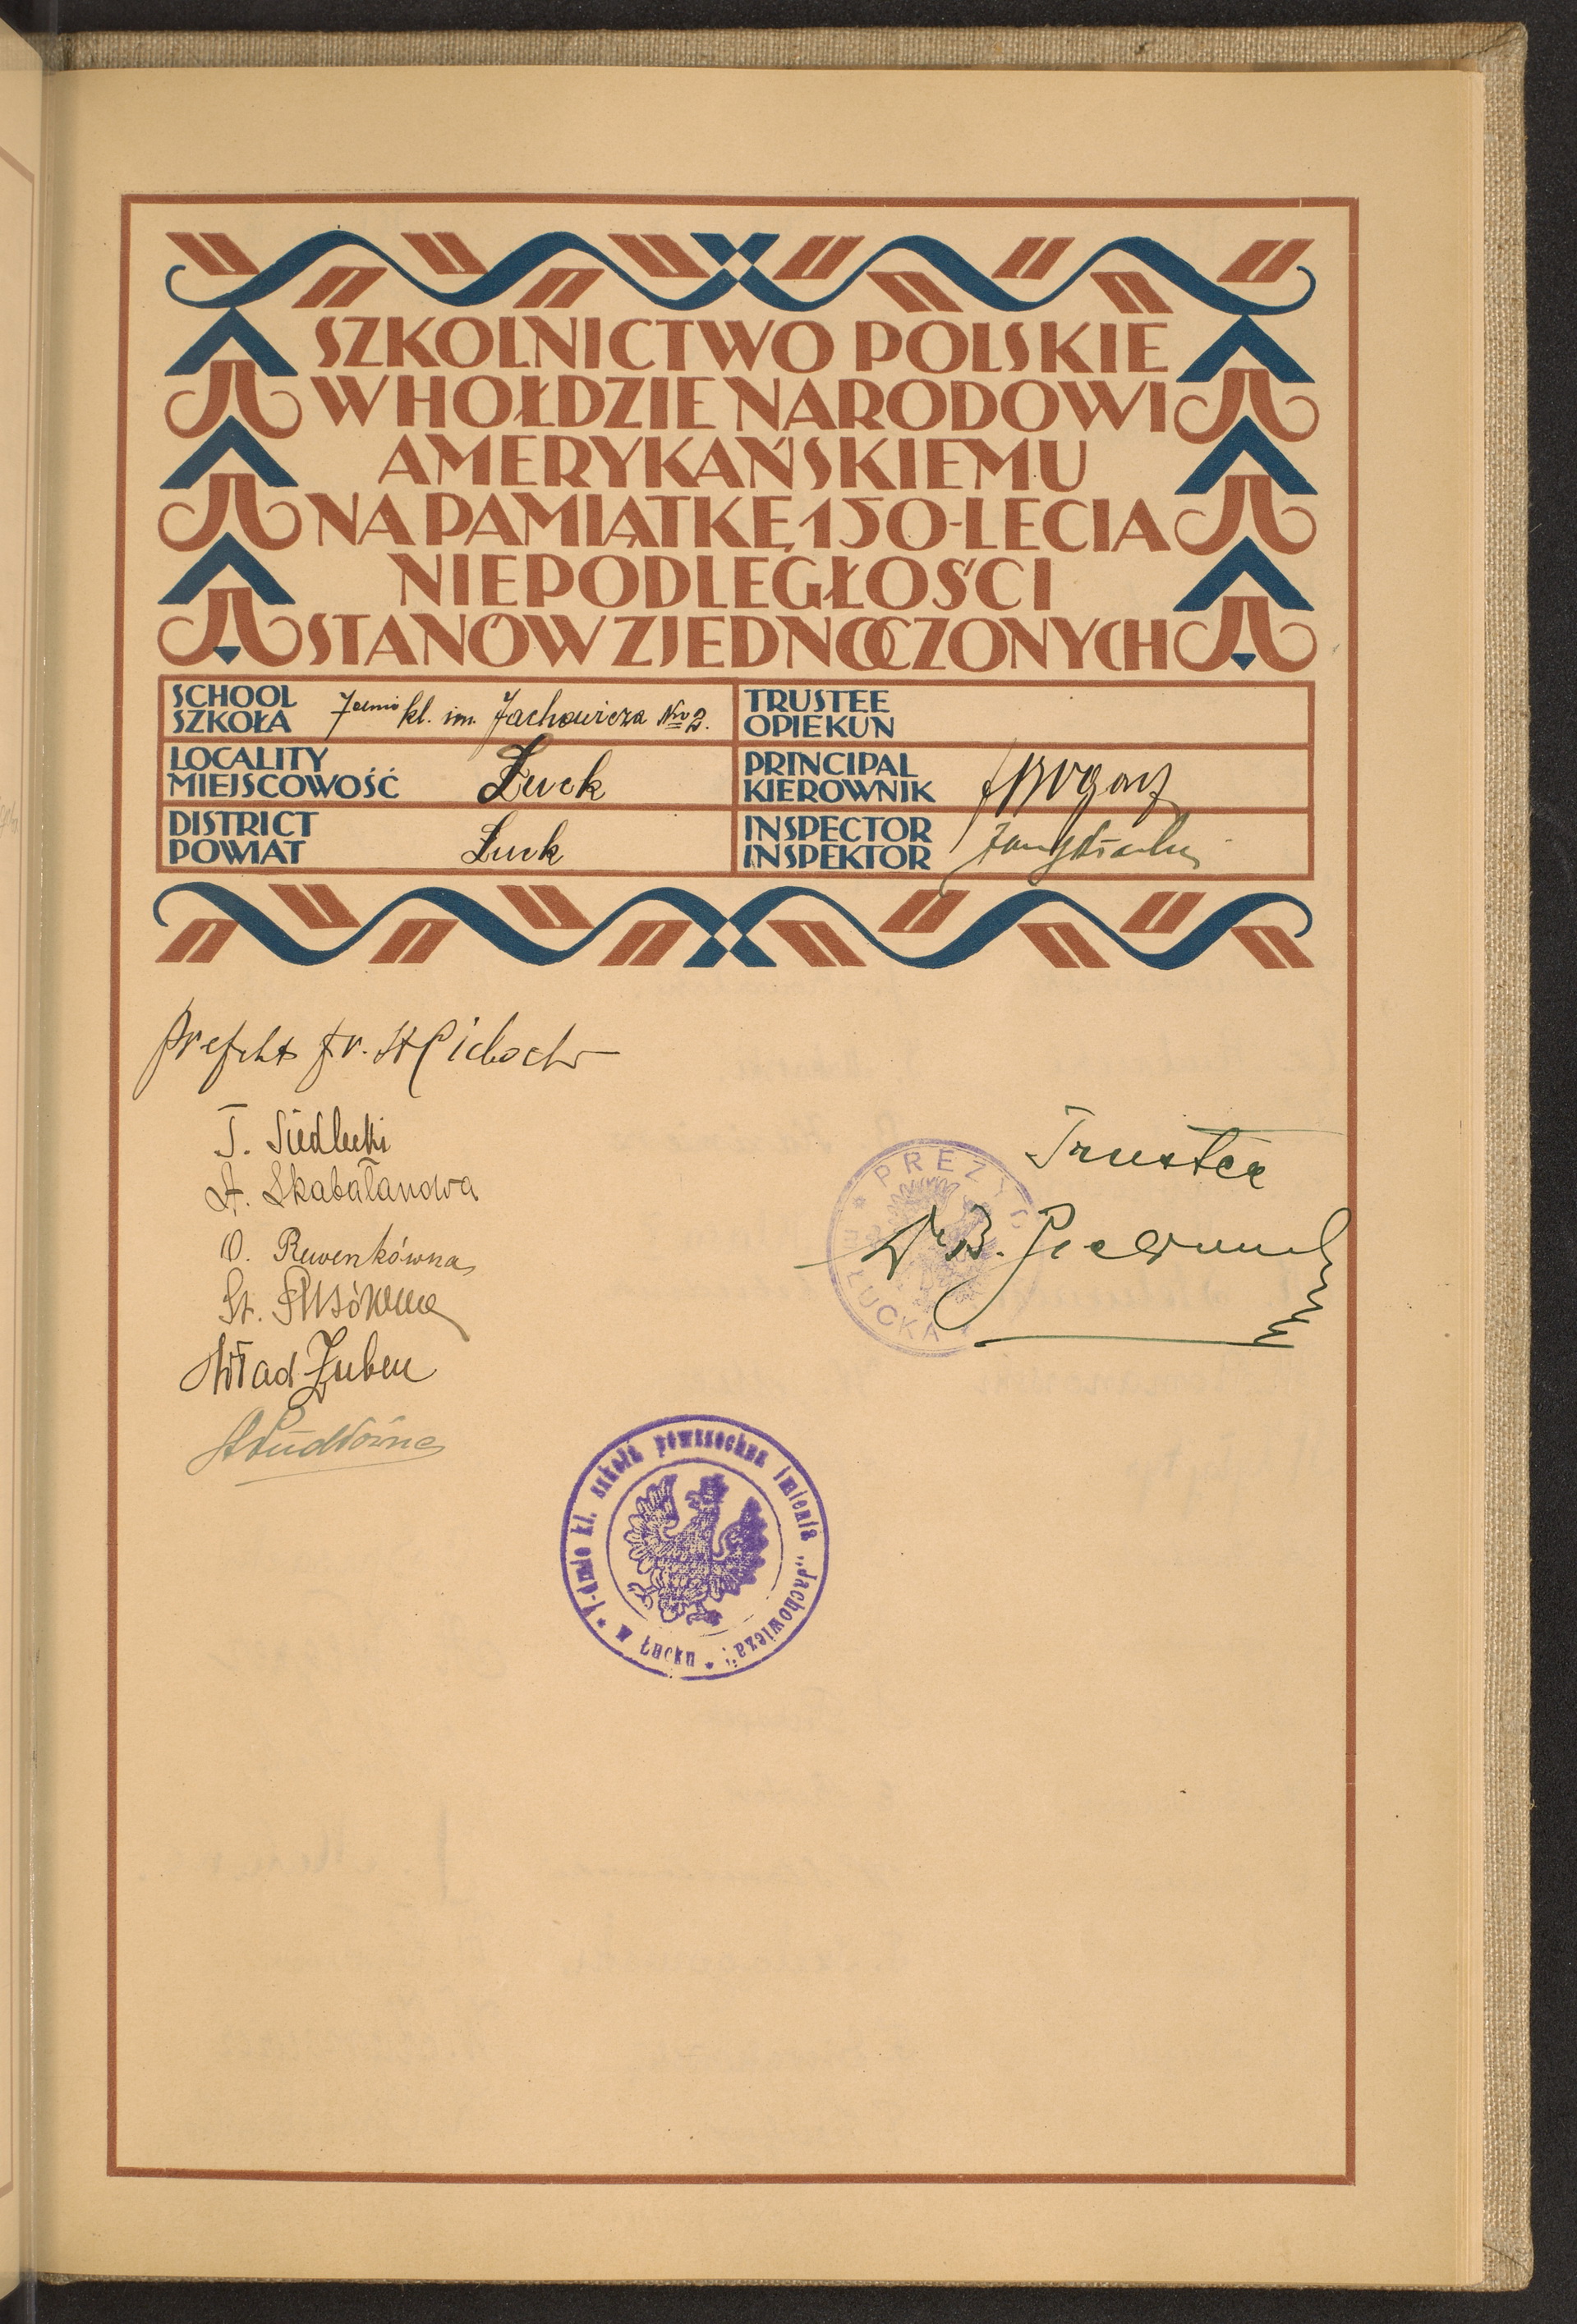 SZKOLNICTWO POLSKIE
W HOŁDZIE NARODOWI
AMERYKAŃSKIEMU
NA PAMIĄTKĘ 150-LECIA
NIEPODLEGŁOŚCI
STANÓW ZJEDNOCZONYCH
SCHOOL
SZKOŁA
7demio kl. im. Jachowicza No 2.
TRUSTEE
OPIEKUN
LOCALITY
MIEJSCOWOŚĆ
Łuck
PRINCIPAL
KIEROWNIK
DISTRICT
POWIAT
Łuck
INSPECTOR
INSPEKTOR
Prefekt
T. Siedlecki
A. Skabałanowa
O. Rewenkówna
St.
Wład Zuben
Trustee
Dr B.
PREZYD
ŁUCKA
7-dmio kl. szkoła powszechna imienia „Jachowicza"
w Łucku